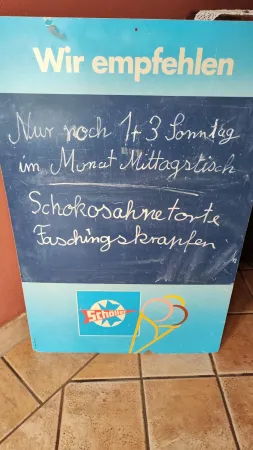 Wir empfehlen
Nur noch 1+3 Sonntag
im Monat Mittagstisch
Schokosahnetorte
Faschingskrapfen
Schöller